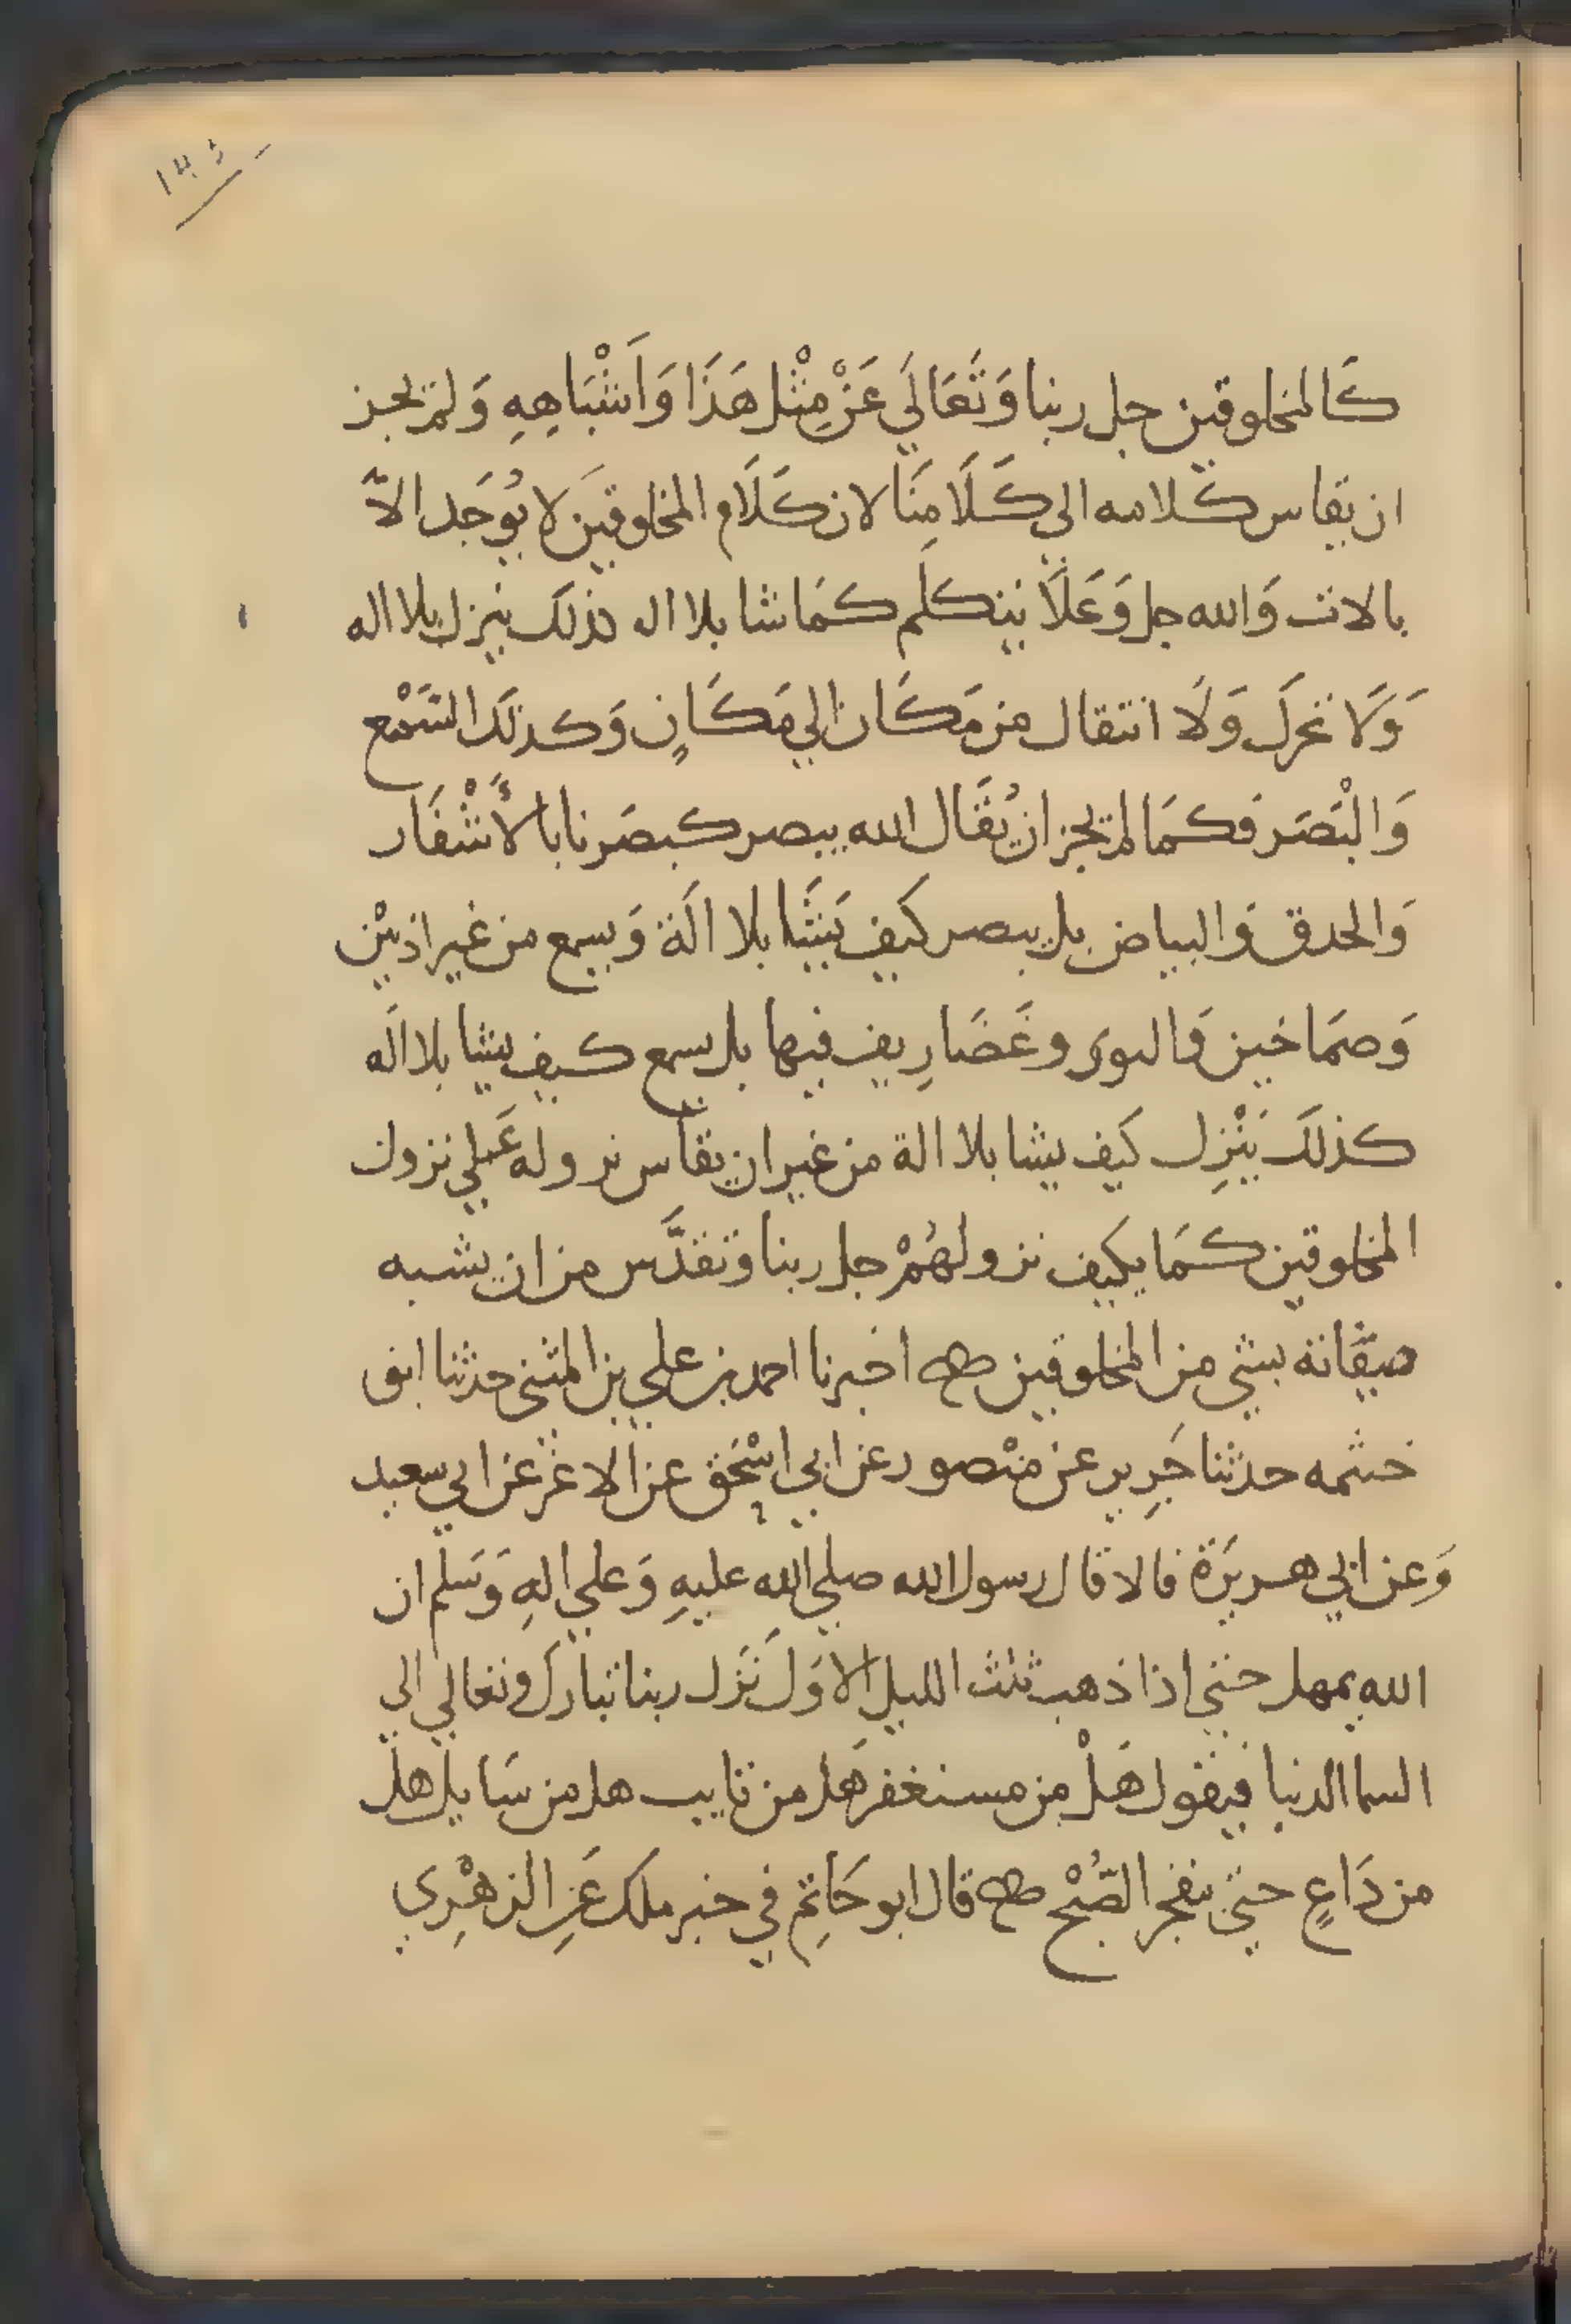 كَالمخلوقين جل ربنا وَتَعَالَي عَنْ مِثْل هَذَا وَاَشْبَاهِهِ وَلم يجز
ان يقاس كلامه الي كَلَامِنَا لان كَلَام المخلوقينَ لا يُوجَد الاَّ
بالات وَالله جل وَعَلَا يتكلم كمَا شا بلا اله كذلك ينزل بلا اله
وَلَا تحرك وَلَا انتقال من مَكَان الي مَكَانٍ وَكذلك السَمْع
وَالبْصَر فكمَا لم يجز ان يُقَال الله يبصر كبصَرنا بالأَشْفَار
وَالحدق وَالبياض بل يبصر كَيف يَشَا بلا الَة وَيسمع من غير اذنيْن
وَصمَاخين وَالتوى وغَضَارِيف فيها بل يسمع كيف يشا بلا الَه
كذلك يَنْزِل كَيف يشا بلا الة من غير ان يقاس نزوله عَلي نزول
المخلوقين كمَا يكيف نزولهُمْ جل ربنا وتقدَّس من ان يشبه
صفَاته بشي من المخلوقين صح اخبرنا احمد بن علي بن المثنى حدثنا ابو
خيثمه حدثنا جَرِير عن منْصور عن ابي اسْحَق عن الاغر عن ابي سعيد
وَعن ابي هريرَة قالا قال رسول الله صلي الله عليهِ وَعلي الهِ وَسَلم ان
الله يمهل حتي اذا ذهب ثلث الليل الاوَل نَزَل ربنا تبارك وتعالي الي
السما الدنيا فيقول هَلْ مِن مستغفر هَل من تايب هل من سَايل هل
من دَاعٍ حتيَ ينفجر الصُّبْح صح قال ابو حَاتِم في خبر ملك عَنِ الزهْرِي